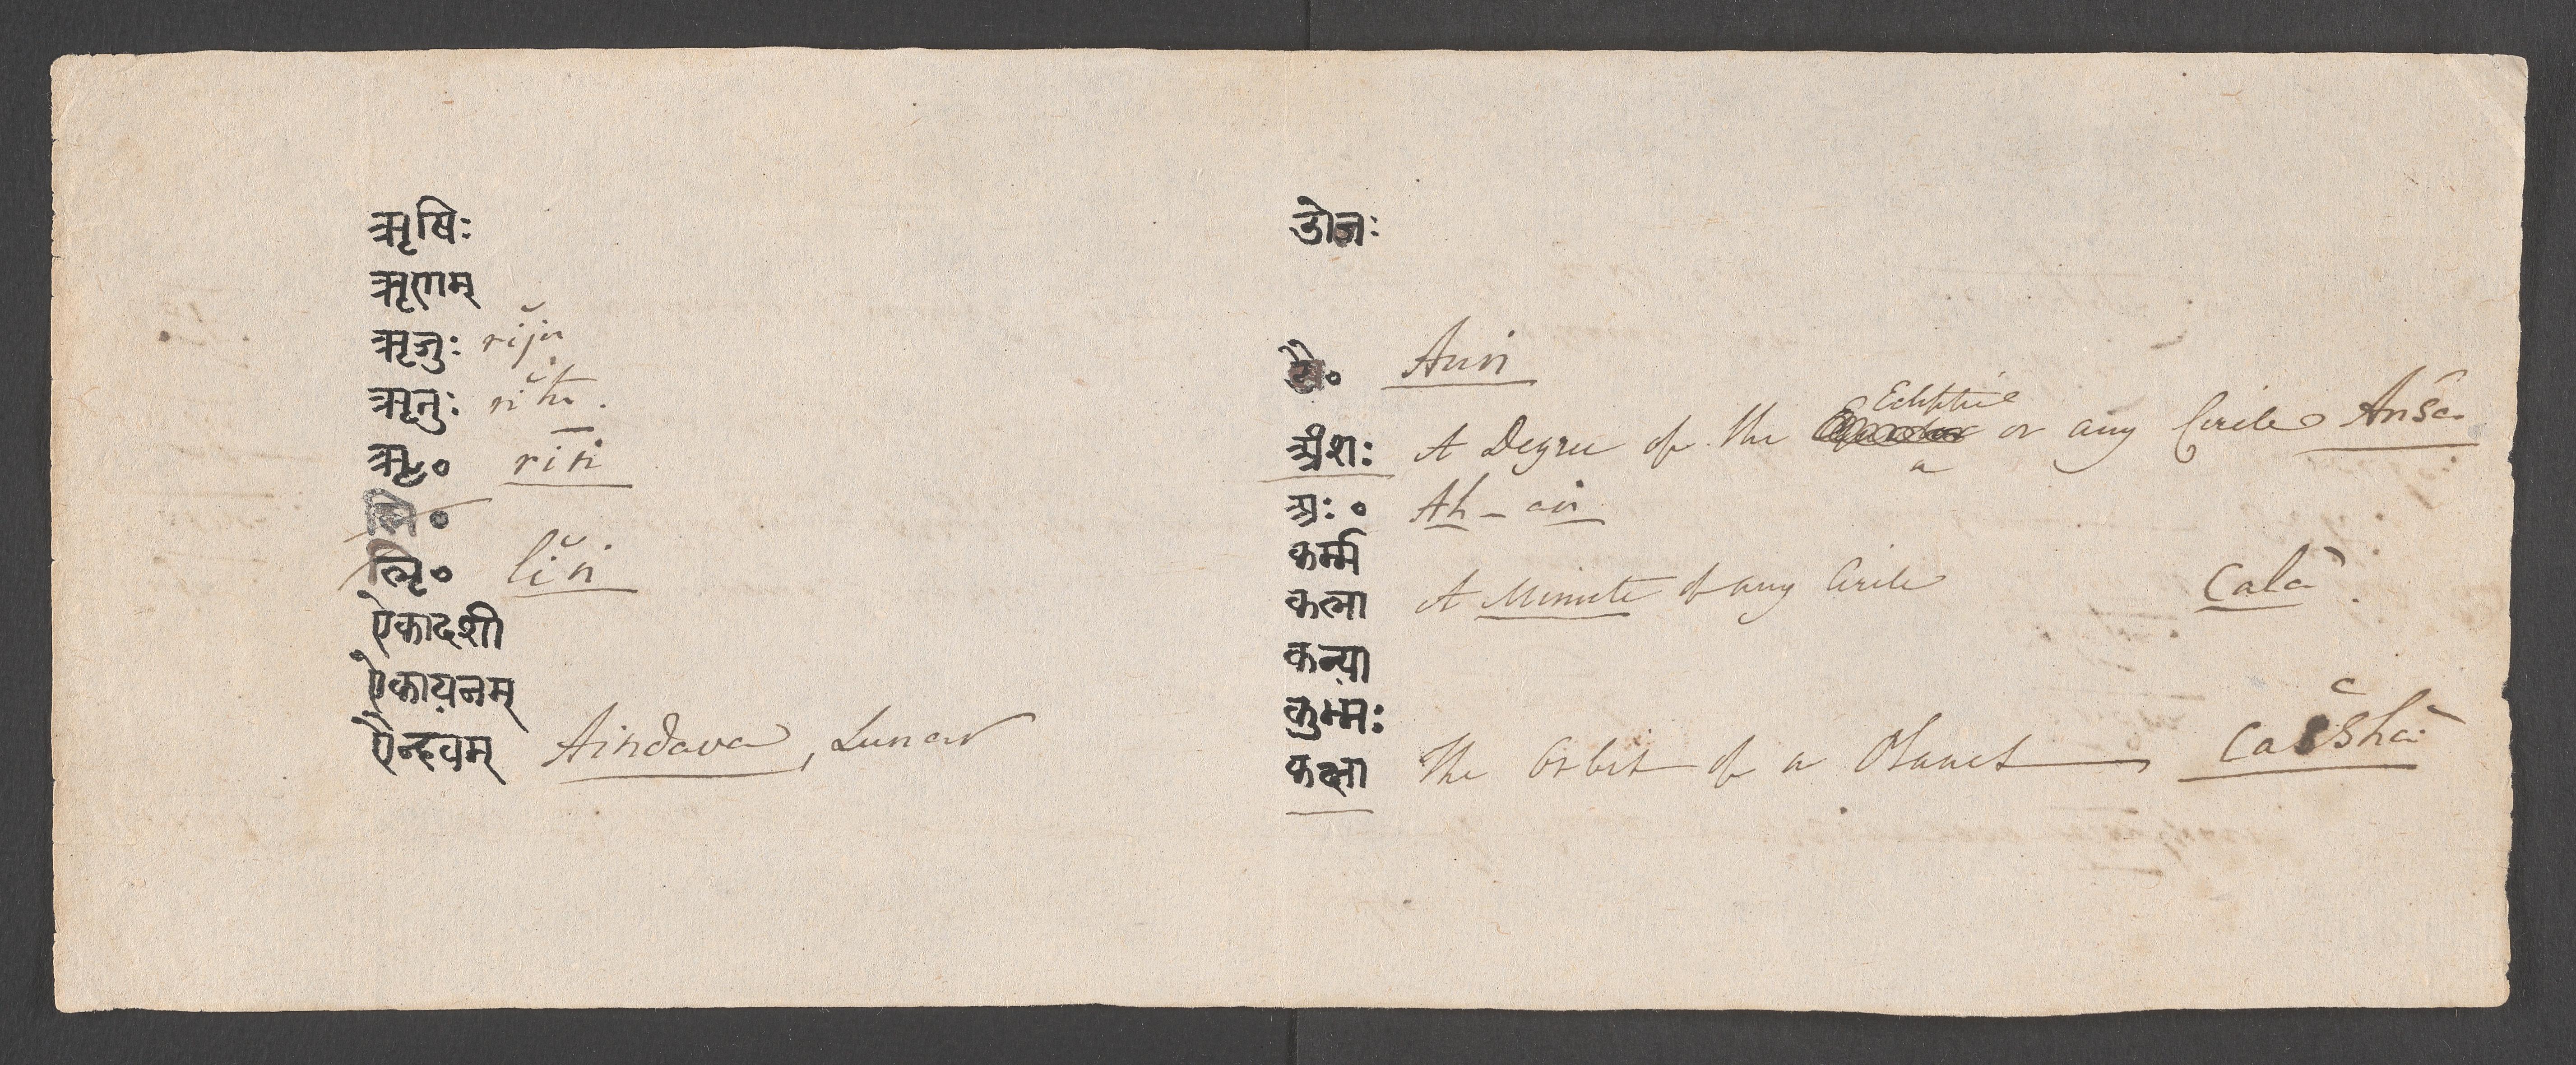 ऋषिः
ऋणम्
ऋजुः rĭju
ऋतुः rĭtu.
ॠ० rīri
ऌ० lĭri
ऐकादशी
ऐकायनम्
ऐन्दवम् Aindava, Lunar
ओजः
Auri
अंशः A Degree of the Ecliptic or any Circle Ansa
a
अः० Ah - ari
कर्म्म
कला A Minute of any Circle Calā.
कन्या
कुम्भः
कक्षा The Orbit of a Planet Cacshā